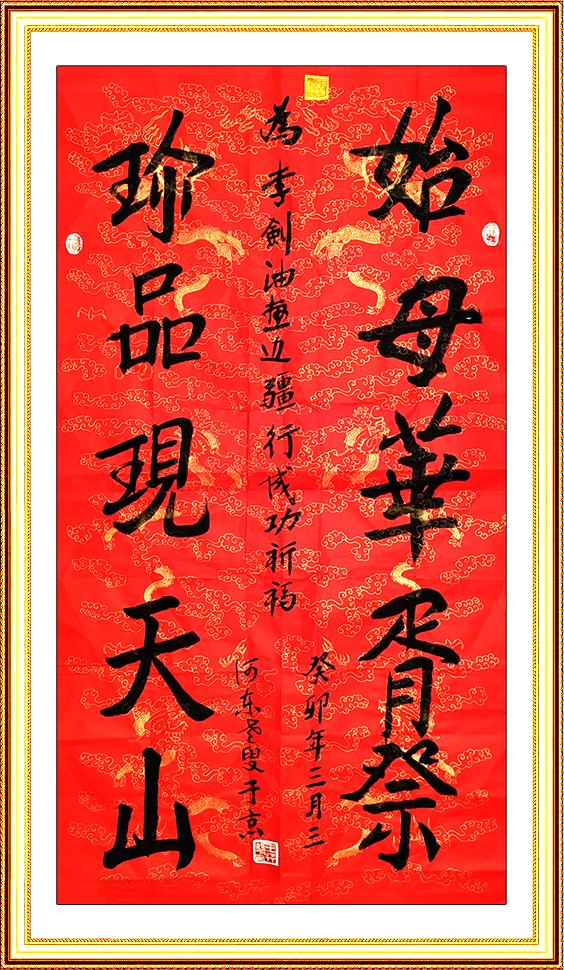 始母華胥祭
為李劍油畫边疆行成功祈福
癸卯年三月三
河东老叟于京
珍品現天山